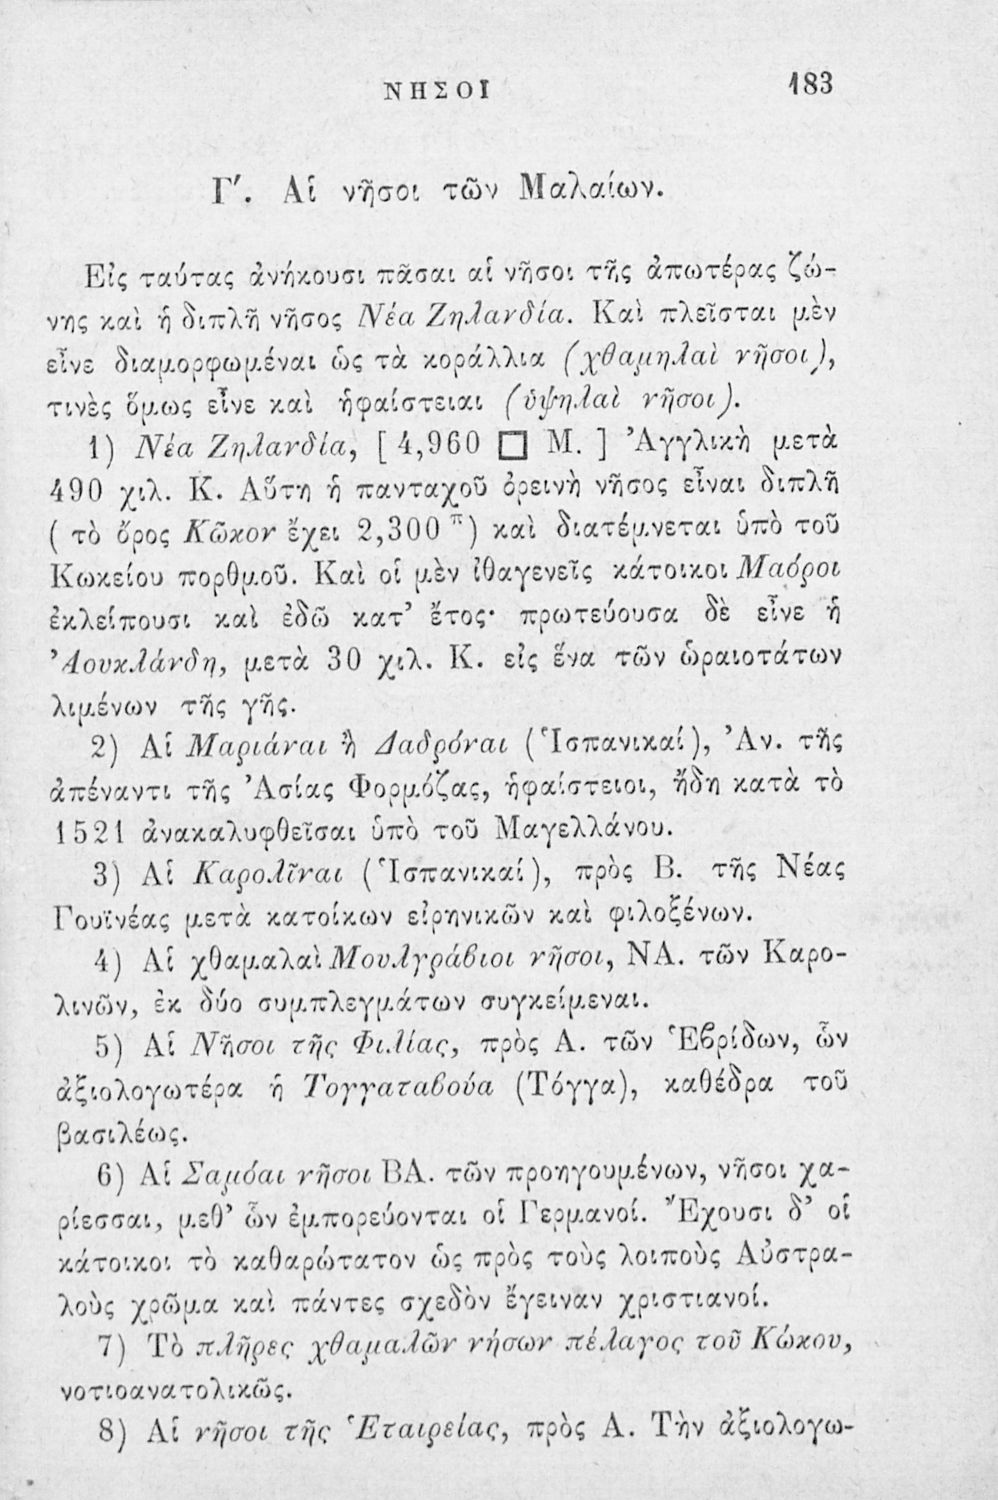 ΝΗΣΟΙ 183
Γ′. Αἱ νῆσοι τῶν Μαλαίων.
Εἰς ταύτας ἀνήκουσι πᾶσαι αἱ νῆσοι τῆς ἀπωτέρας ζώ-
νης καὶ ἡ διπλῆ νῆσος Νέα Ζηλανδία. Καὶ πλεῖσται μὲν
εἶνε διαμορφωμέναι ὡς τὰ κοράλλια (χθαμηλαὶ νῆσοι),
τινὲς ὅμως εἶνε καὶ ἡφαίστειαι (ὑψηλαὶ νῆσοι).
1) Νέα Ζηλανδία, [ 4,960 □ Μ. ] Ἀγγλικὴ μετὰ
490 χιλ. Κ. Αὕτη ἡ πανταχοῦ ὀρεινὴ νῆσος εἶναι διπλῆ
( τὸ ὄρος Κῶκον ἔχει 2,300 π) καὶ διατέμνεται ὑπὸ τοῦ
Κωκείου πορθμοῦ. Καὶ οἱ μὲν ἰθαγενεῖς κάτοικοι Μαόροι
ἐκλείπουσι καὶ ἐδῶ κατ’ ἔτος· πρωτεύουσα δὲ εἶνε ἡ
Ἀουκλάνδη, μετὰ 30 χιλ. Κ. εἰς ἕνα τῶν ὡραιοτάτων
λιμένων τῆς γῆς.
2) Αἱ Μαριάναι ἢ Λαδρόναι (Ἱσπανικαί), Ἀν. τῆς
ἀπέναντι τῆς Ἀσίας Φορμόζας, ἡφαίστειοι, ἤδη κατὰ τὸ
1521 ἀνακαλυφθεῖσαι ὑπὸ τοῦ Μαγελλάνου.
3) Αἱ Καρολῖναι (Ἱσπανικαί), πρὸς Β. τῆς Νέας
Γουϊνέας μετὰ κατοίκων εἰρηνικῶν καὶ φιλοξένων.
4) Αἱ χθαμαλαὶ Μουλγράβιοι νῆσοι, ΝΑ. τῶν Καρο-
λινῶν, ἐκ δύο συμπλεγμάτων συγκείμεναι.
5) Αἱ Νῆσοι τῆς Φιλίας, πρὸς Α. τῶν Ἑβρίδων, ὧν
ἀξιολογωτέρα ἡ Τογγαταβούα (Τόγγα), καθέδρα τοῦ
βασιλέως.
6) Αἱ Σαμόαι νῆσοι ΒΑ. τῶν προηγουμένων, νῆσοι χα-
ρίεσσαι, μεθ’ ὧν ἐμπορεύονται οἱ Γερμανοί. Ἔχουσι δ’ οἱ
κάτοικοι τὸ καθαρώτατον ὡς πρὸς τοὺς λοιποὺς Αὐστρα-
λοὺς χρῶμα καὶ πάντες σχεδὸν ἔγειναν χριστιανοί.
7) Τὸ πλῆρες χθαμαλῶν νήσων πέλαγος τοῦ Κώκου,
νοτιοανατολικῶς.
8) Αἱ νῆσοι τῆς Ἑταιρείας, πρὸς Α. Τὴν ἀξιολογω-